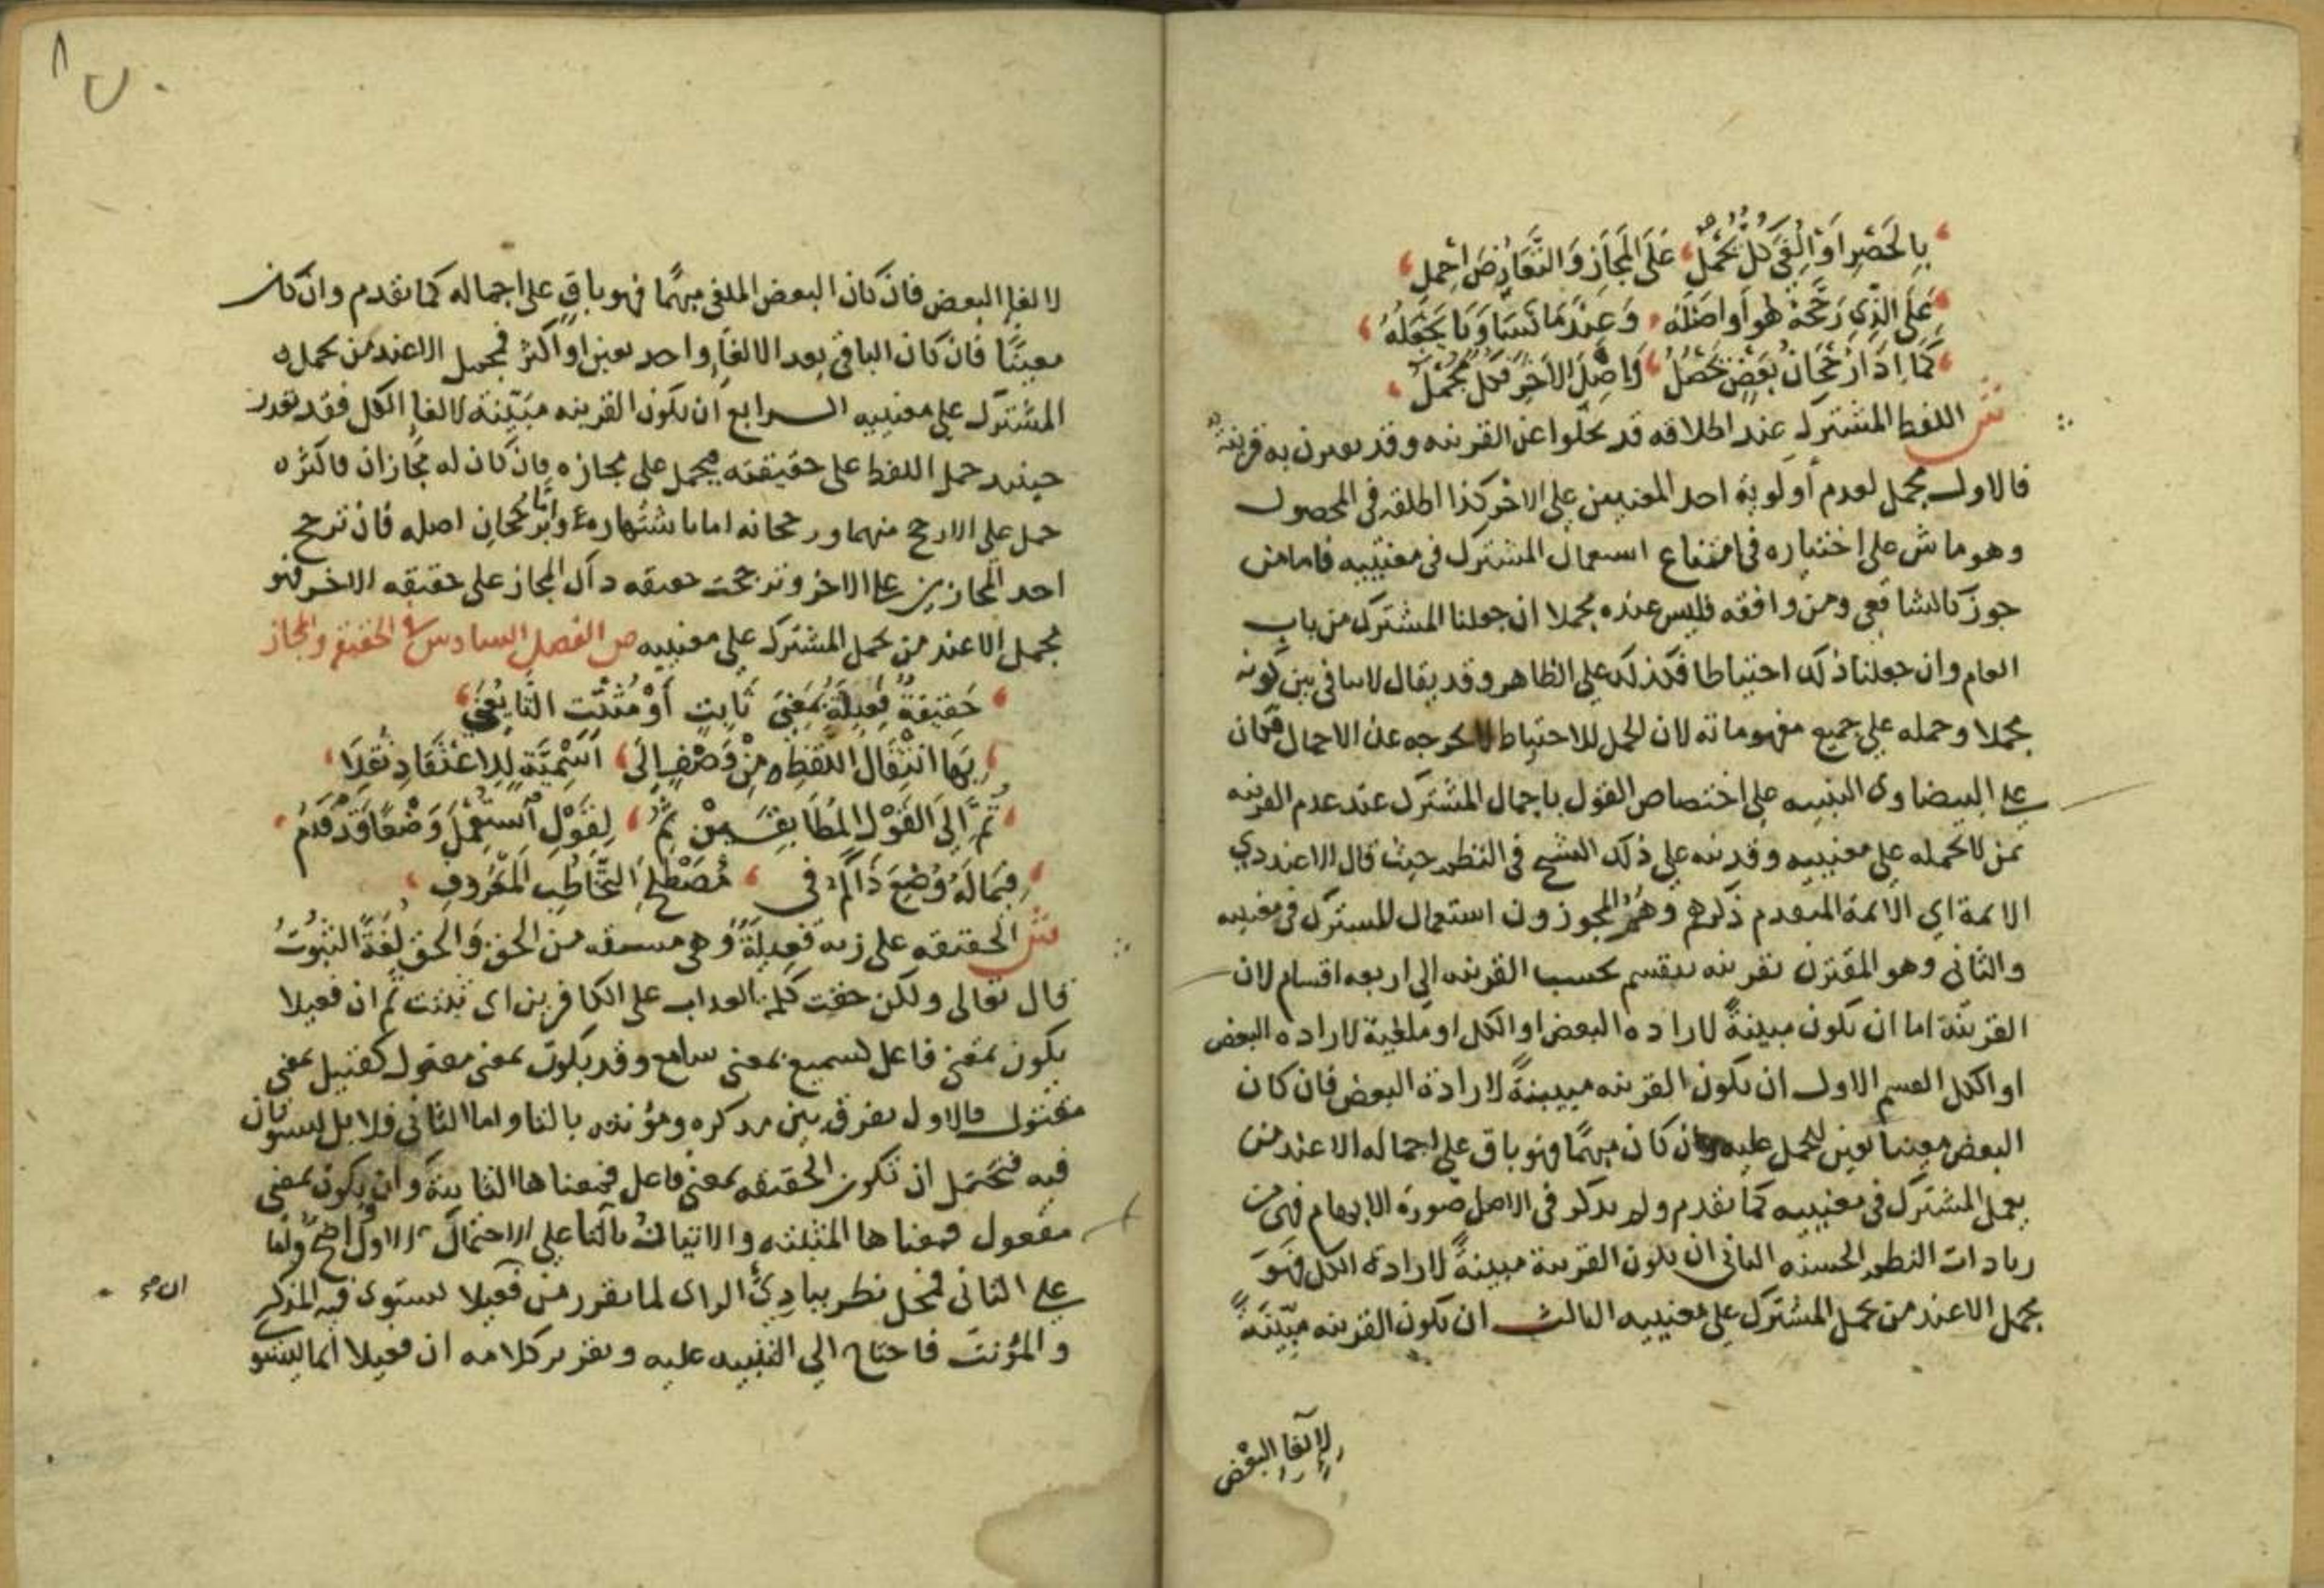 بِالحَصْرِ اَوْ اُلْقِيَ كُلٌّ يُحْمَلُ عَلَى المَجَازِ وَالتَّعَارُضَ احْمِلِ
عَلَى الَّذِي رَجَّحَهُ هُوَ أَو اصْلُهُ وَعِنْدَمَا تَسَاوَيَا
كَمَا اِذَا رُجْحَانُ بَعْضٍ يَحْصُلُ وَاصْلُ الاَخَرِ فَكُلٌّ مُجْمَلُ
ش اللفظ المشترك عند اطلاقه قد يخلوا عن القرينه وقد يقترن به قرينة
فالاول مجمل لعدم أولوية احد المعنيين على الاخر كذا اطلقه في المحصول
وهو ماش على اختياره في امتناع استعمال المشترك في معنييه فاما من
جوز كالشافعي ومن وافقه فليس عنده مجملا ان جعلنا المشترك من باب
العام وان جعلنا ذلك احتياطا فكذلك على الظاهر وقد يقال لا ينافي بين كونه
مجملا وحمله على جميع مفهوماته لان الحمل للاحتياط لا يخرجه عن الاجمال فكان
على البيضاوي التنبيه على اختصاص القول باجمال المشترك عند عدم القرينه
بمن لا يحمله على معنييه وقد نبه على ذلك الشيخ في النظم حيث قال الا عند ذي
الائمة اي الائمة المتقدم ذكرهم وهم المجوزون استعمال المشترك في معنييه
والثاني وهو المقترن بقرينه ينقسم بحسب القرينه الى اربعه اقسام لان
القرينة اما ان تكون مبينةً لاراده البعض او الكل او ملغية لاراده البعض
او الكل القسم الاول ان تكون القرينه مبينةً لارادة البعض فان كان
البعض معينا تعين الحمل عليه وان كان مبهمًا فهو باق على اجماله الا عند من
يعمل المشترك في معنييه كما تقدم ولم يذكر في الاصل صورة الابهام فهي من
زيادات النظم الحسنه الثاني ان تكون القرينة مبينةً لارادة الكل فهو
مجمل الا عند من يحمل المشترك على معنييه الثالث ان تكون القرينه مبيّنةً
لإلغا البعْض
لالغا البعض فان كان البعض الملغى مبهمًا فهو باقٍ على اجماله كما تقدم وان كان
معينًا فان كان الباقي بعد الالغاء واحد تعين او اكثر فمجمل الا عند من يحمل
المشترك على معنييه الرابع ان تكون القرينه مبَيّنة لالغا الكل فقد تعذر
حينئذ حمل اللفظ على حقيقته فيحمل على مجازه فان كان له مجازان فاكثر
حمل على الارجح منهما ورجحانه اما باشتهاره واما برجحان اصله فان ترجح
احد المجازين على الاخر وترجحت حقيقه ذاك المجاز على حقيقه الاخر فهو
مجمل الا عند من يحمل المشترك على معنييه ص الفصل السادس في الحقيقة والمجاز
حَقِيقَةٌ فَعِيلَةٌ بمَعْنَى ثَابِتٍ أَوْ مُثْبَتٍ التَّا يُعْنَى
بِهَا انْتِقَالُ اللفْظِ مِنْ وَصْفٍ إِلَى اَسْمِيَّةٍ لِلِاعْتِقَادِ نُقِلَا
ثُمَّ اِلَى القَوْلِ المُطَابِقِ مِنْ ثَمّ لِقَوْلٍ اُسْتُعْمِلَ وَضْعًا قَدْ قَدُمْ
فِيمَا لَهُ وُضِعَ ذَاكَ في مُصْطَلَحِ التَّخَاطُبِ المَعْرُوفِ
ش الحقيقه على زنه فَعِيلَة وهي مشتقه من الحق وَالحق لغَةً الثبُوتُ
قال تعالى ولكن حقت كلمة العذاب على الكافرين اي ثبتت ثم ان فعيلا
يكون بمعنى فاعل كسميع بمعنى سامع وقد يكون بمعنى مفعول كقتيل بمعنى
مقتول فالاول يفرق بين مذكره ومؤنثه بالتا واما الثاني فلا بل يستويان
فيه فيحتمل ان تكون الحقيقه بمعنى فاعل فمعناها الثابتة وان يكون بمعنى
مفعول فمعناها المثبته والاتيان بالتا على الاحتمال الاول واضح واما
على الثاني فمحل نظر ببادئ الراى لما تقرر من ان فعيلا يستوى فيه المذكر
والمؤنث فاحتاج الي التنبيه عليه وتقرير كلامه ان فعيلا انما يستو